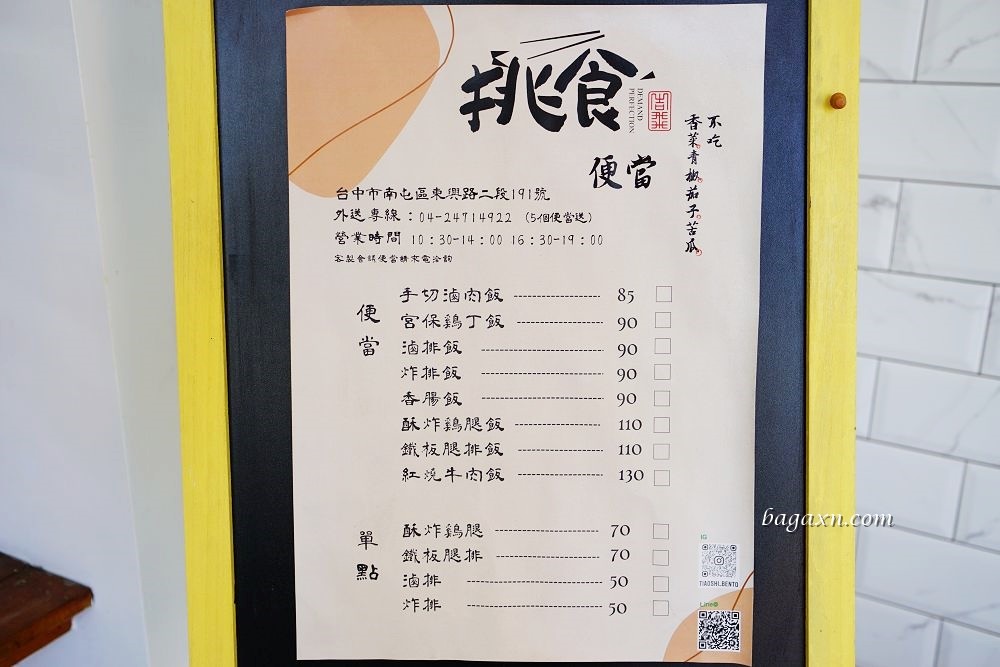 挑食
DEMAND
PERFECTION
便當
不吃
香菜青椒茄子苦瓜
台中市南屯區東興路二段191號
外送專線：04-24714922 (5個便當送)
營業時間 10：30-14：00 16：30-19：00
客製會議便當請來電洽詢
便當
手切滷肉飯 85
宮保鷄丁飯 90
滷排飯 90
炸排飯 90
香腸飯 90
酥炸鷄腿飯 110
鐵板腿排飯 110
紅燒牛肉飯 130
單點
酥炸鷄腿 70
鐵板腿排 70
滷排 50
炸排 50
bagaxn.com
IG
TIAOSHI.BENTO
Line@